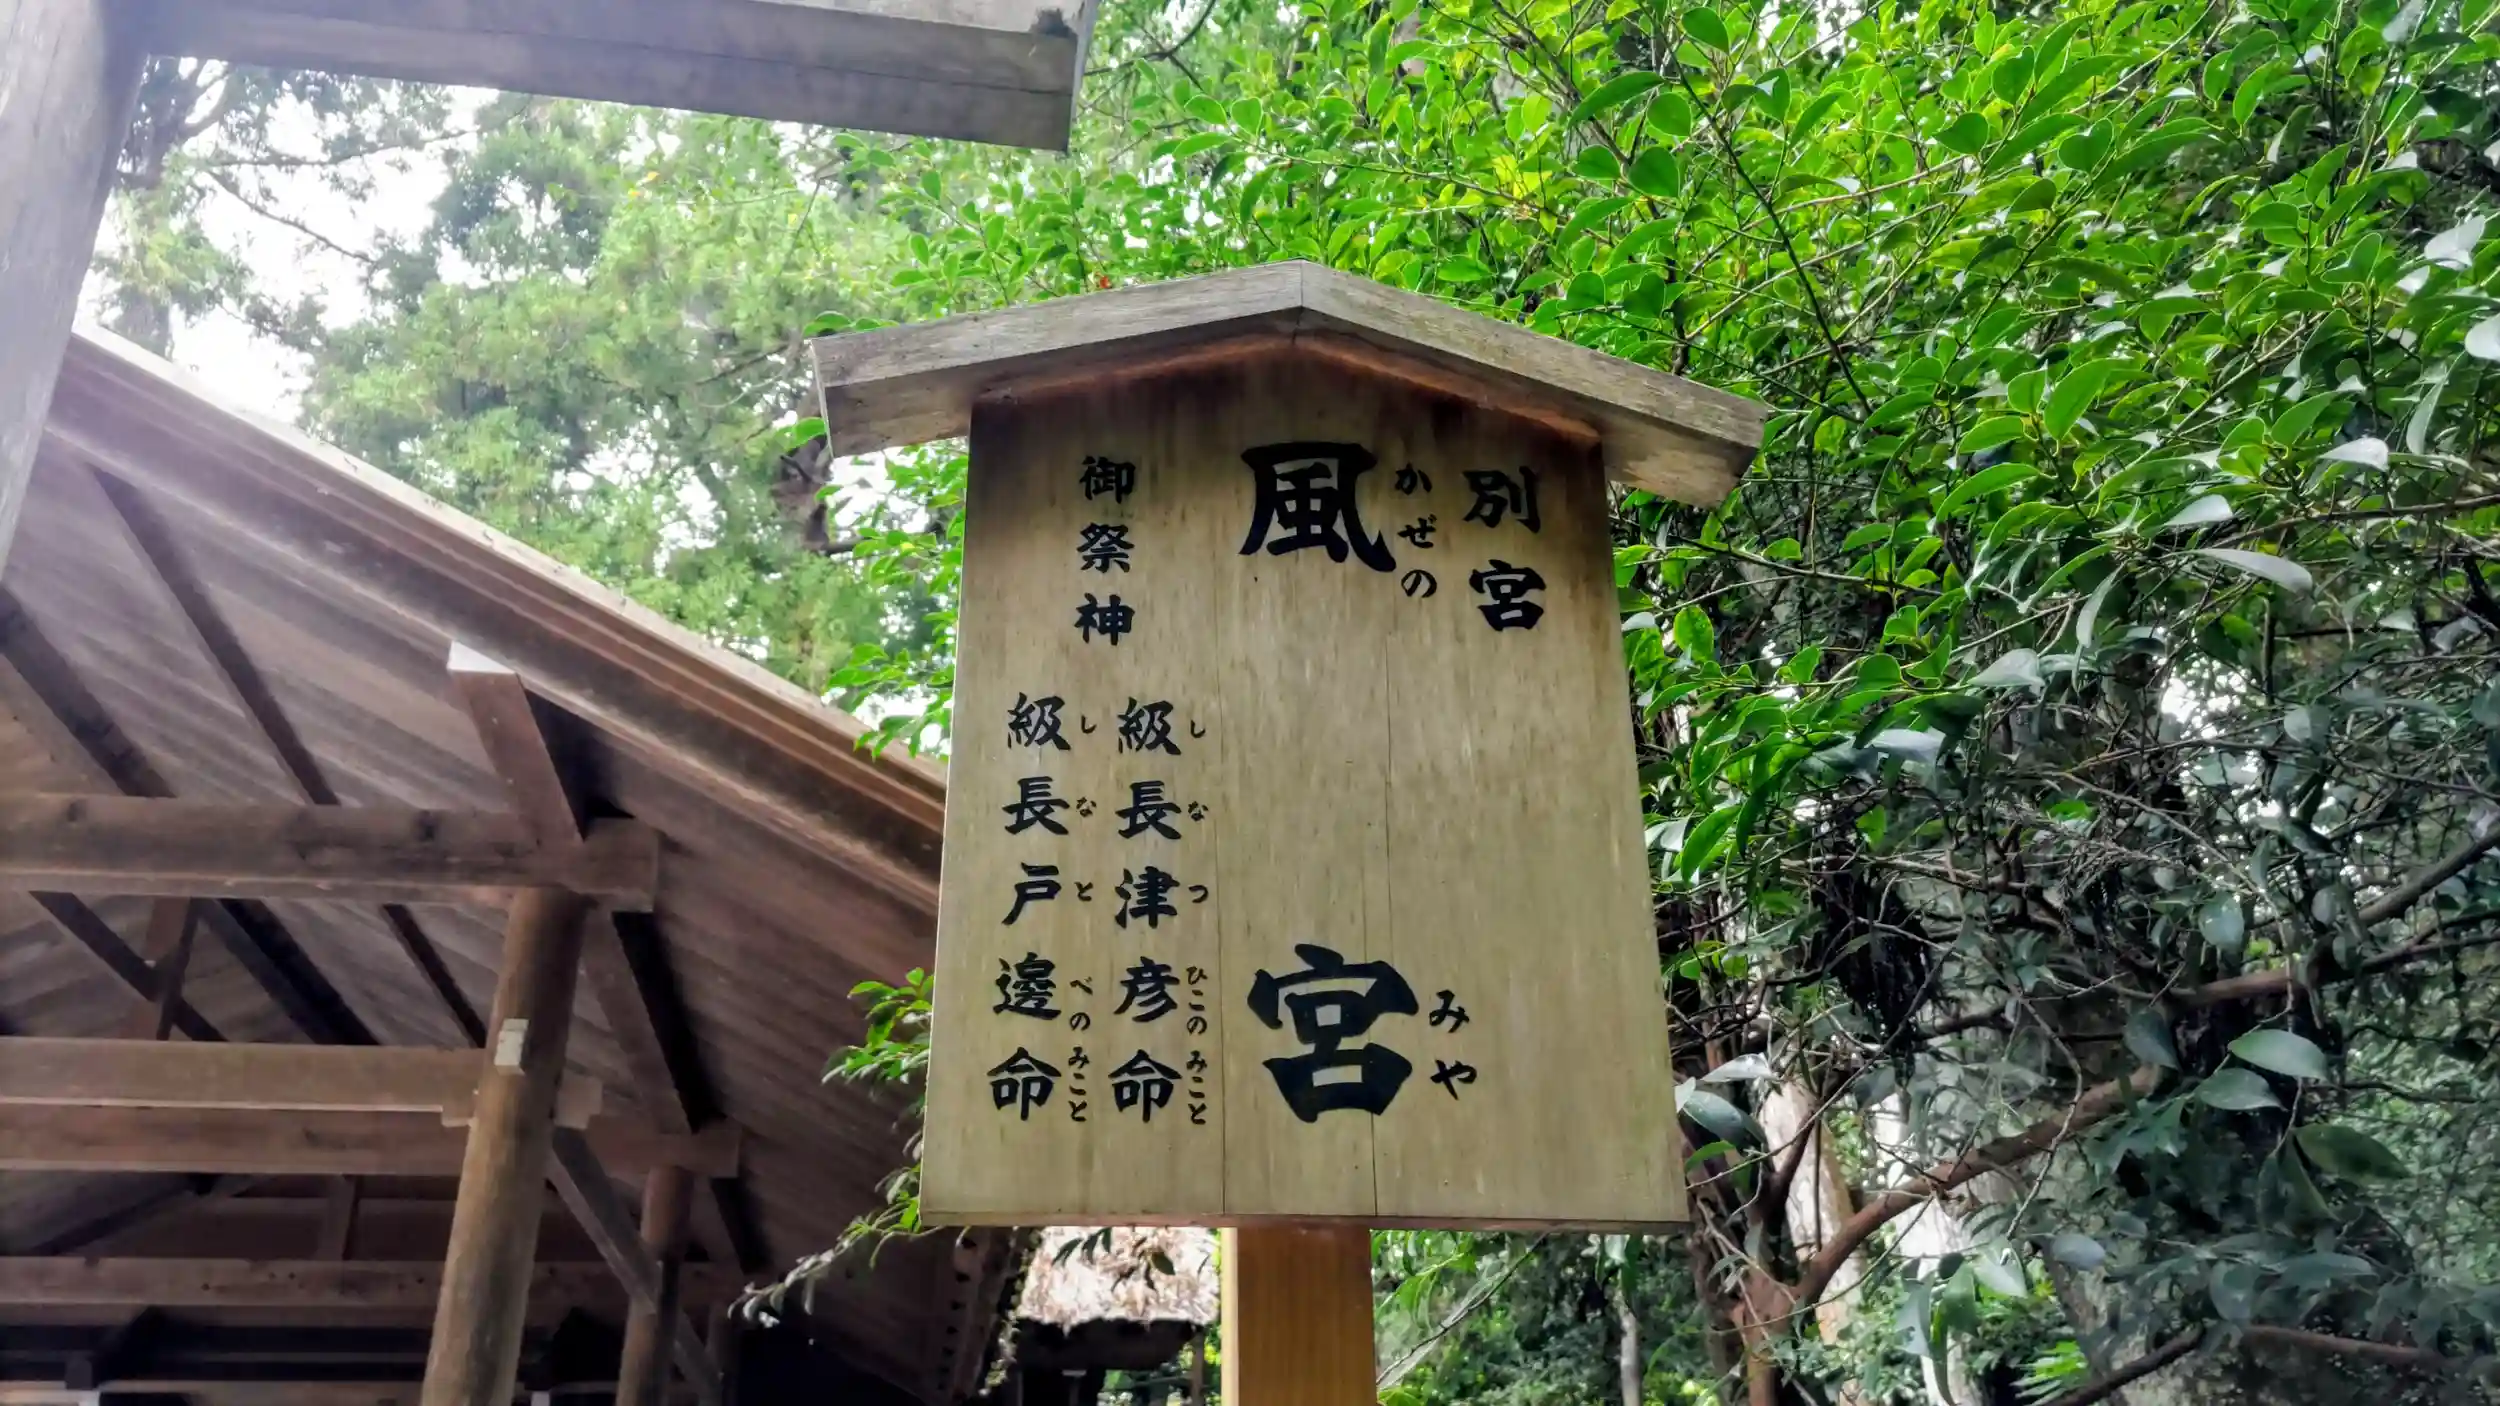 別宮
風宮
かぜのみや
御祭神
級長津彦命
しなつひこのみこと
級長戸邊命
しなとべのみこと